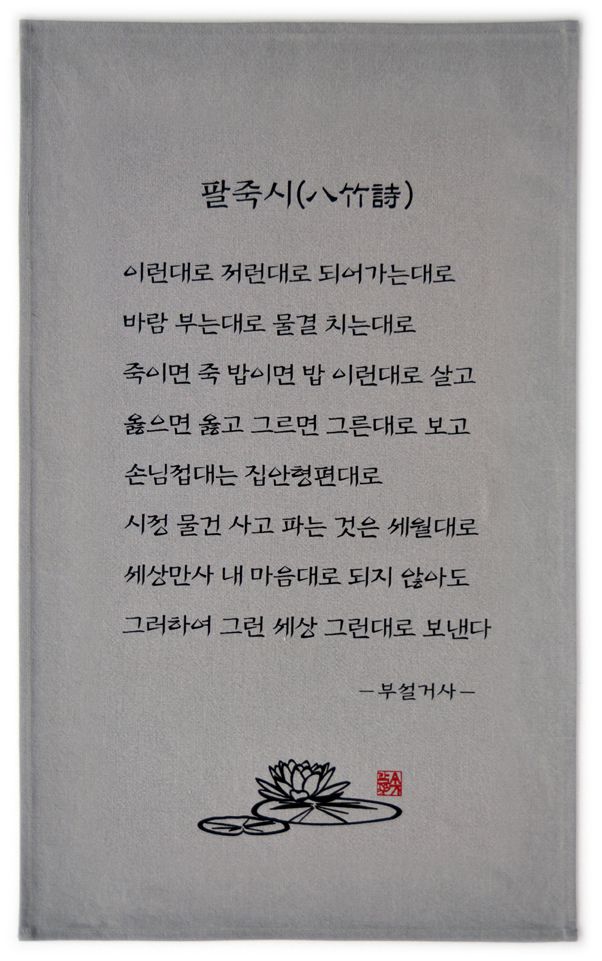 팔죽시(八竹詩)
이런대로 저런대로 되어가는대로
바람 부는대로 물결 치는대로
죽이면 죽 밥이면 밥 이런대로 살고
옳으면 옳고 그르면 그른대로 보고
손님접대는 집안형편대로
시정 물건 사고 파는 것은 세월대로
세상만사 내 마음대로 되지 않아도
그러하여 그런 세상 그런대로 보낸다
-부설거사-